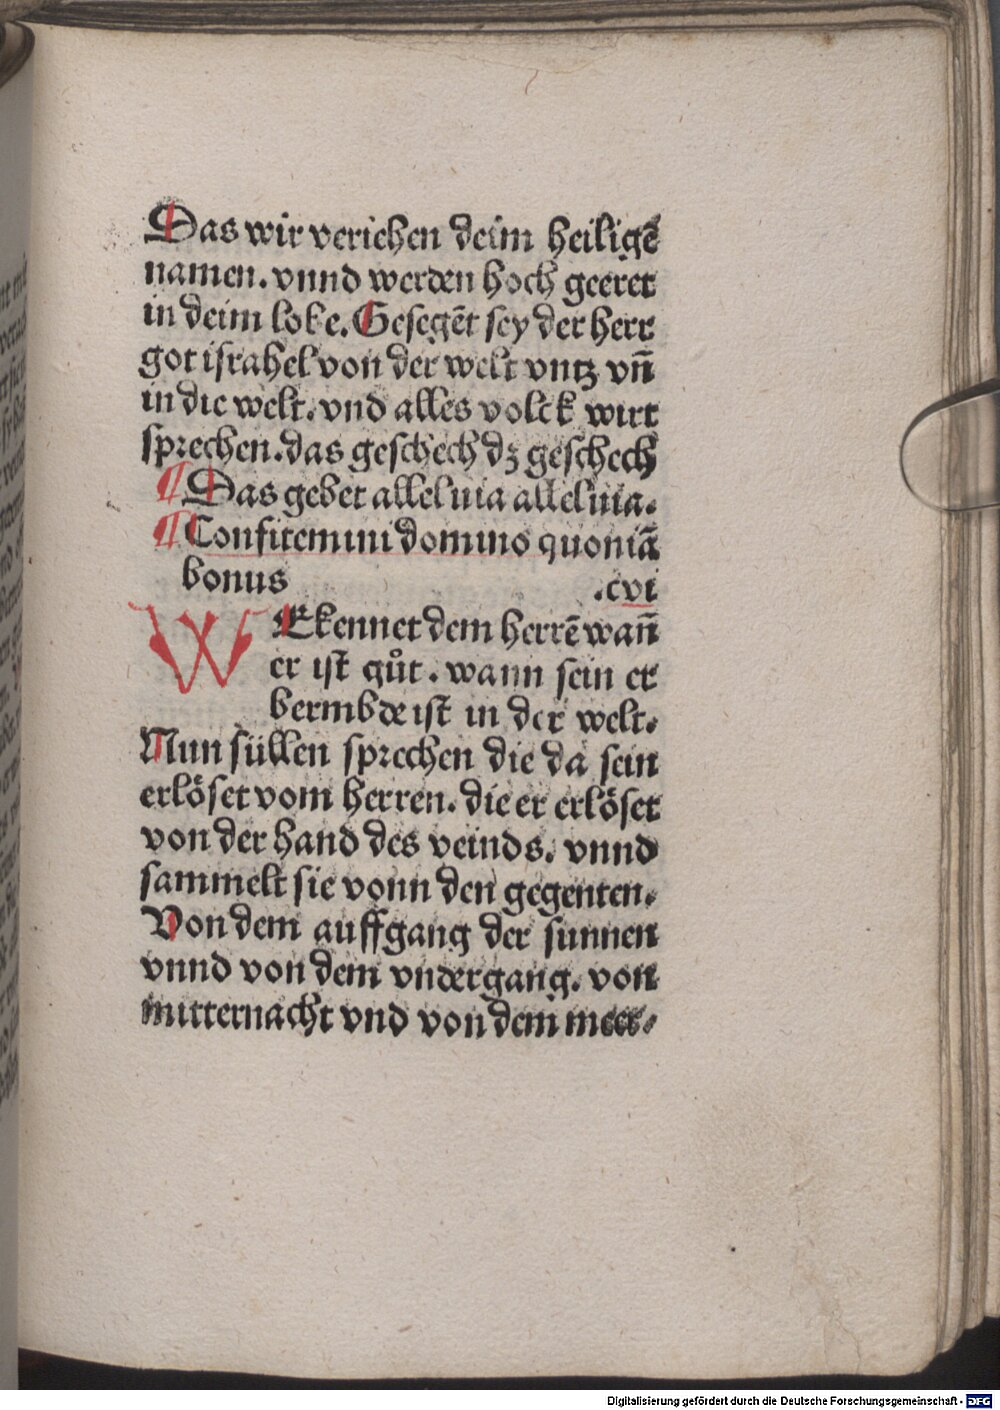 Das wir veriehen deim heiligē
namen. vnnd werden hoch geeret
in deim lobe. Gesegēt sey der herr
got israhel von der welt vntz vn̄
in die welt. vnd alles volck wirt
sprechen. das geschech dz geschech
¶ Das gebet alleluia alleluia.
¶ Confitemini domino quoniā
bonus .cvi
WEkennet dem herrē wan̄
er ist gůt. wann sein er
bermbde ist in der welt.
Nun süllen sprechen die da sein
erlöset vom herren. die er erlöset
von der hand des veinds. vnnd
sammelt sie vonn den gegenten.
Von dem auffgang der sunnen
vnnd von dem vndergang. von
mitternacht vnd von dem meer.
Digitalisierung gefördert durch die Deutsche Forschungsgemeinschaft - DFG